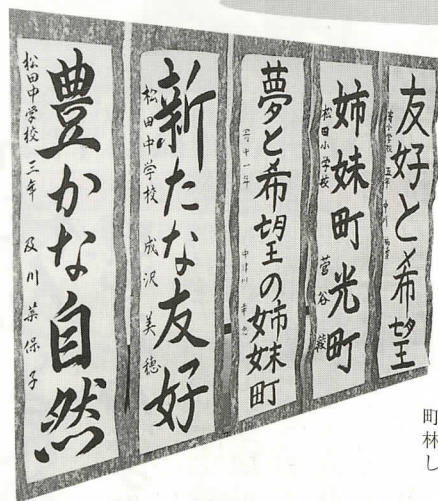 友好と希望
姉妹町光町
松田小学長
菅谷
夢と希望の姉妹町
中津川
新たな友好
松田中学校 成沢美穂
豊かな自然
松田中学校 三年 及川菜保子
町
林
し